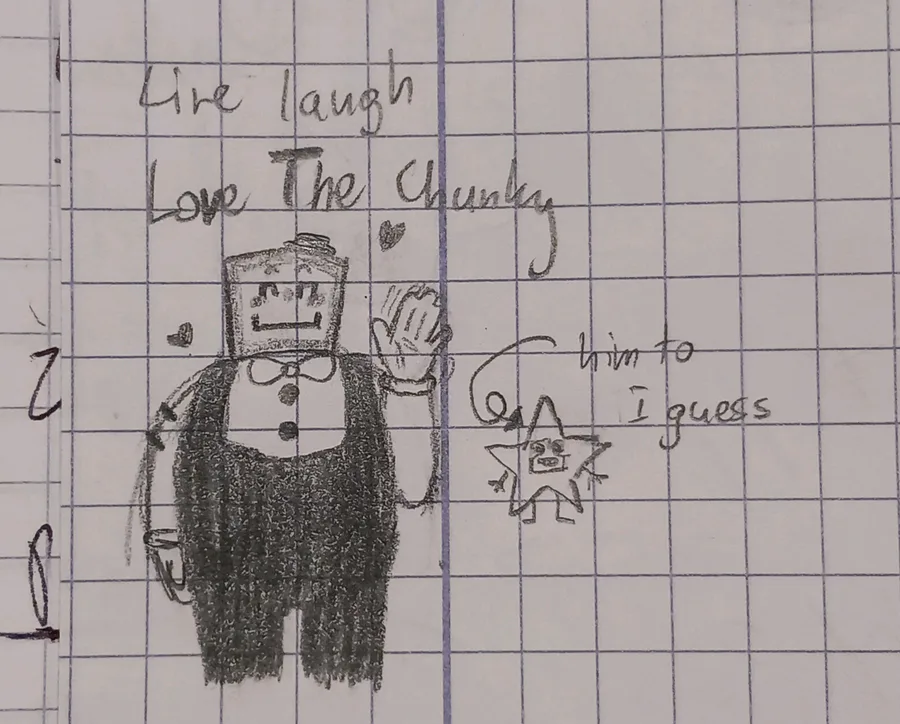 Live laugh
Love The Chunky
him to
I guess